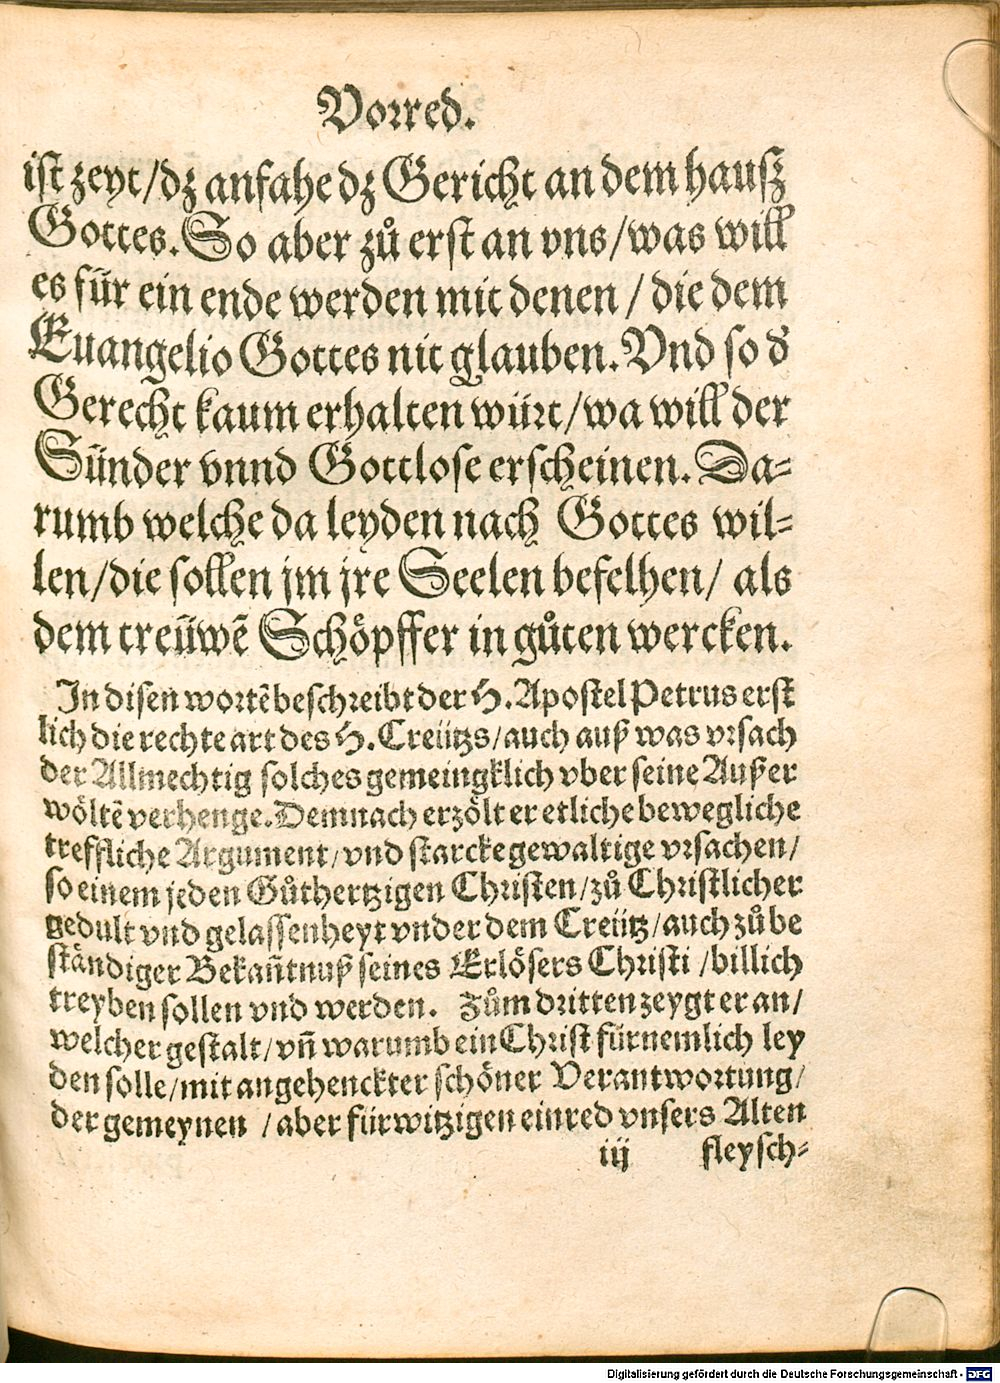 Vorred.
ist zeyt/dz anfahe dz Gericht an dem hausz
Gottes. So aber zů erst an vns/was will
es für ein ende werden mit denen / die dem
Euangelio Gottes nit glauben. Vnd so d̕
Gerecht kaum erhalten würt/wa will der
Sünder vnnd Gottlose erscheinen. Da=
rumb welche da leyden nach Gottes wil=
len/die sollen jm jre Seelen befelhen/ als
dem treüwẽ Schöpffer in gůten wercken.
In disen wortẽ beschreibt der H. Apostel Petrus erst
lich die rechte art des H. Creützs/auch auß was vrsach
der Allmechtig solches gemeingklich vber seine Außer
wöltẽ verhenge. Demnach erzölt er etliche bewegliche
treffliche Argument/vnd starcke gewaltige vrsachen/
so einem jeden Gůthertzigen Christen/zů Christlicher
gedult vnd gelassenheyt vnder dem Creütz/auch zů be
ständiger Bekañtnuß seines Erlösers Christi /billich
treyben sollen vnd werden. Zům dritten zeygt er an/
welcher gestalt/vñ warumb ein Christ fürnemlich ley
den solle/mit angehenckter schöner Verantwortung/
der gemeynen /aber fürwitzigen einred vnsers Alten
iij fleysch=
Digitalisierung gefördert durch die Deutsche Forschungsgemeinschaft - DFG